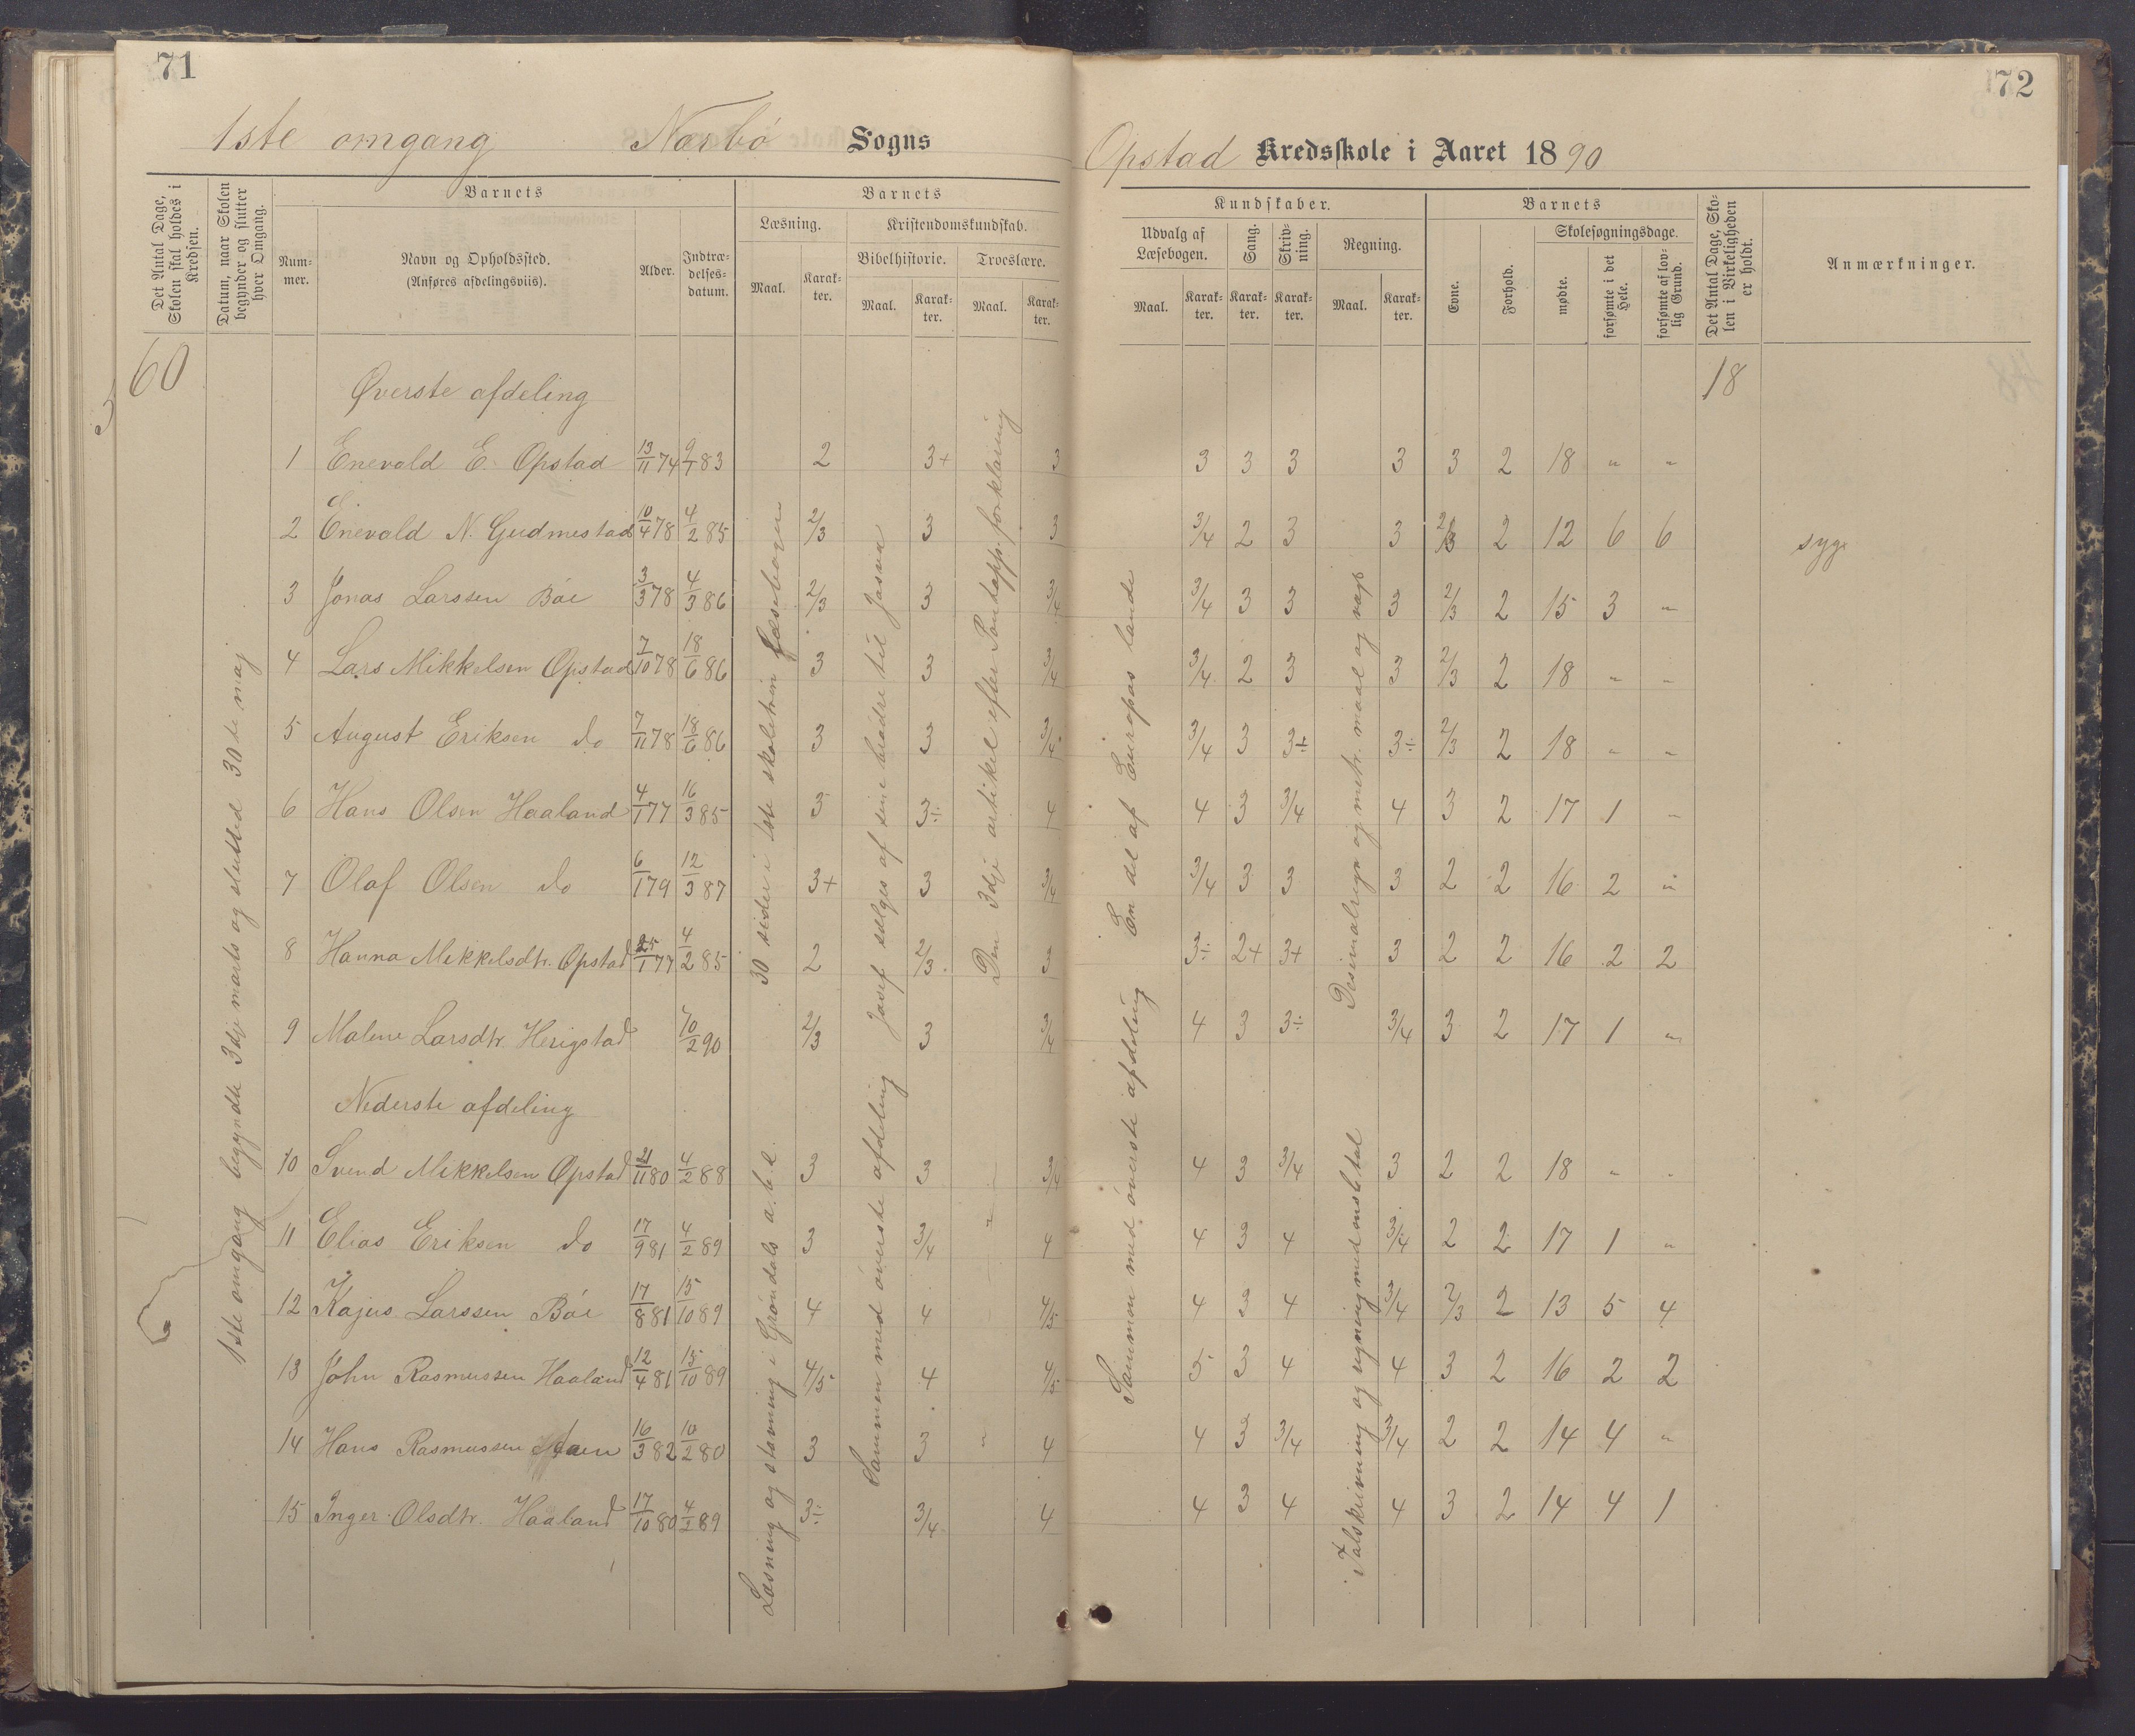 71
1ste omgang Narbø Sogns
Det Antal Dage, Skolen skal holdes i Kredsen.
Datum, naar Skolen begynder og slutter hver Omgang.
Barnets
Nummer.
Navn og Opholdssted.
(Anføres afdelingsviis).
Alder.
Indtrædelsesdatum.
Barnets
Læsning.
Maal.
Karakter.
Kristendomskundskab.
Bibelhistorie.
Maal.
Karakter.
Troeslære.
Maal.
Karakter.
60
1ste omgang begyndte 3dje marts og slutted 30te maj
Øverste afdeling
1 Enevald E. Opstad 13/11 74 9/1 83 2 3+ 3
2 Enevald N. Gudmestad 10/4 78 4/2 85 2/3 3 3
3 Jonas Larssen Bøe 3/3 78 4/3 86 2/3 3 3/4
4 Lars Mikkelsen Opstad 7/10 78 18/6 86 3 3 3/4
5 August Eriksen do 7/11 78 18/6 86 3 3 3/4
6 Hans Olsen Haaland 4/1 77 16/3 85 3 3÷ 4
7 Olaf Olsen do 6/1 79 12/3 87 3+ 3 3/4
8 Hanna Mikkelsdtr. Opstad 25/1 77 4/2 85 2 2/3 3
9 Malene Larsdtr. Herigstad 10/2 90 2/3 3 3/4
Nederste afdeling
10 Svend Mikkelsen Opstad 21/11 80 4/2 88 3 3 3/4
11 Elias Eriksen do 17/9 81 4/2 89 3 3/4 4
12 Kajus Larssen Bøe 17/8 81 15/10 89 4 4 4/5
13 John Rasmussen Haaland 12/4 81 15/10 89 4/5 4 4/5
14 Hans Rasmussen 16/3 82 10/2 80 3 3 " 4
15 Inger Olsdtr. Haaland 17/10 80 4/2 89 3÷ 3/4 4
30 sider i 1ste skoletrin læsebogen
Læsning og stavning i Grøndals a.b.c.
Josef sælges af sine brødre til Josva
Sammen med øverste afdeling
Den 3dje artikel efter Pontopp. forklaring
72
Opstad Kredsskole i Aaret 1890
Kundskaber.
Udvalg af Læsebogen.
Maal.
Karakter.
Sang.
Karakter.
Skrivning.
Karakter.
Regning.
Maal.
Karakter.
Barnets
Evne.
Forhold.
Skolesøgningsdage.
mødte.
forsømte i det Hele.
forsømte af lovlig Grund.
Det Antal Dage, Skolen i Virkeligheden er holdt.
Anmærkninger.
18
3 3 3 3 3 2 18 " "
3/4 2 3 3 2/3 2 12 6 6 syg
3/4 3 3 3 2/3 2 15 3 "
3/4 2 3 3 2/3 2 18 " "
3/4 3 3÷ 3÷ 2/3 2 18 " "
4 3 3/4 4 3 2 17 1 "
3/4 3 3 3 2 2 16 2 "
3÷ 2+ 3+ 3 2 2 16 2 2
4 3 3÷ 3/4 3 2 17 1 "
4 3 3/4 3 2 2 18 " "
4 3 4 3/4 2 2 17 1 "
4 3 4 3/4 2/3 2 13 5 4
5 3 4 4 3 2 16 2 2
4 3 3/4 3/4 2 2 14 4 "
4 3 4 4 3 2 14 4 1
En del af Europas lande
Sammen med øverste afdeling
Desimalregn. og metr. maal og vægt
Talskrivning og regning med ensb. tal